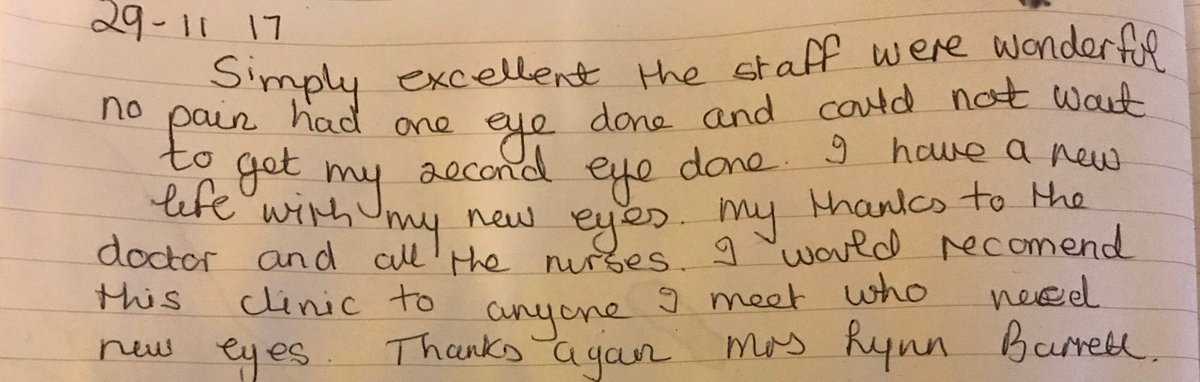 29-11 17
Simply excellent the staff were wonderful
no pain had one eye done and could not wait
to get my second eye done. I have a new
life with my new eyes. My thanks to the
doctor and all the nurses. I would recomend
this clinic to anyone I meet who need
new eyes. Thanks again Mrs Lynn Barrell.